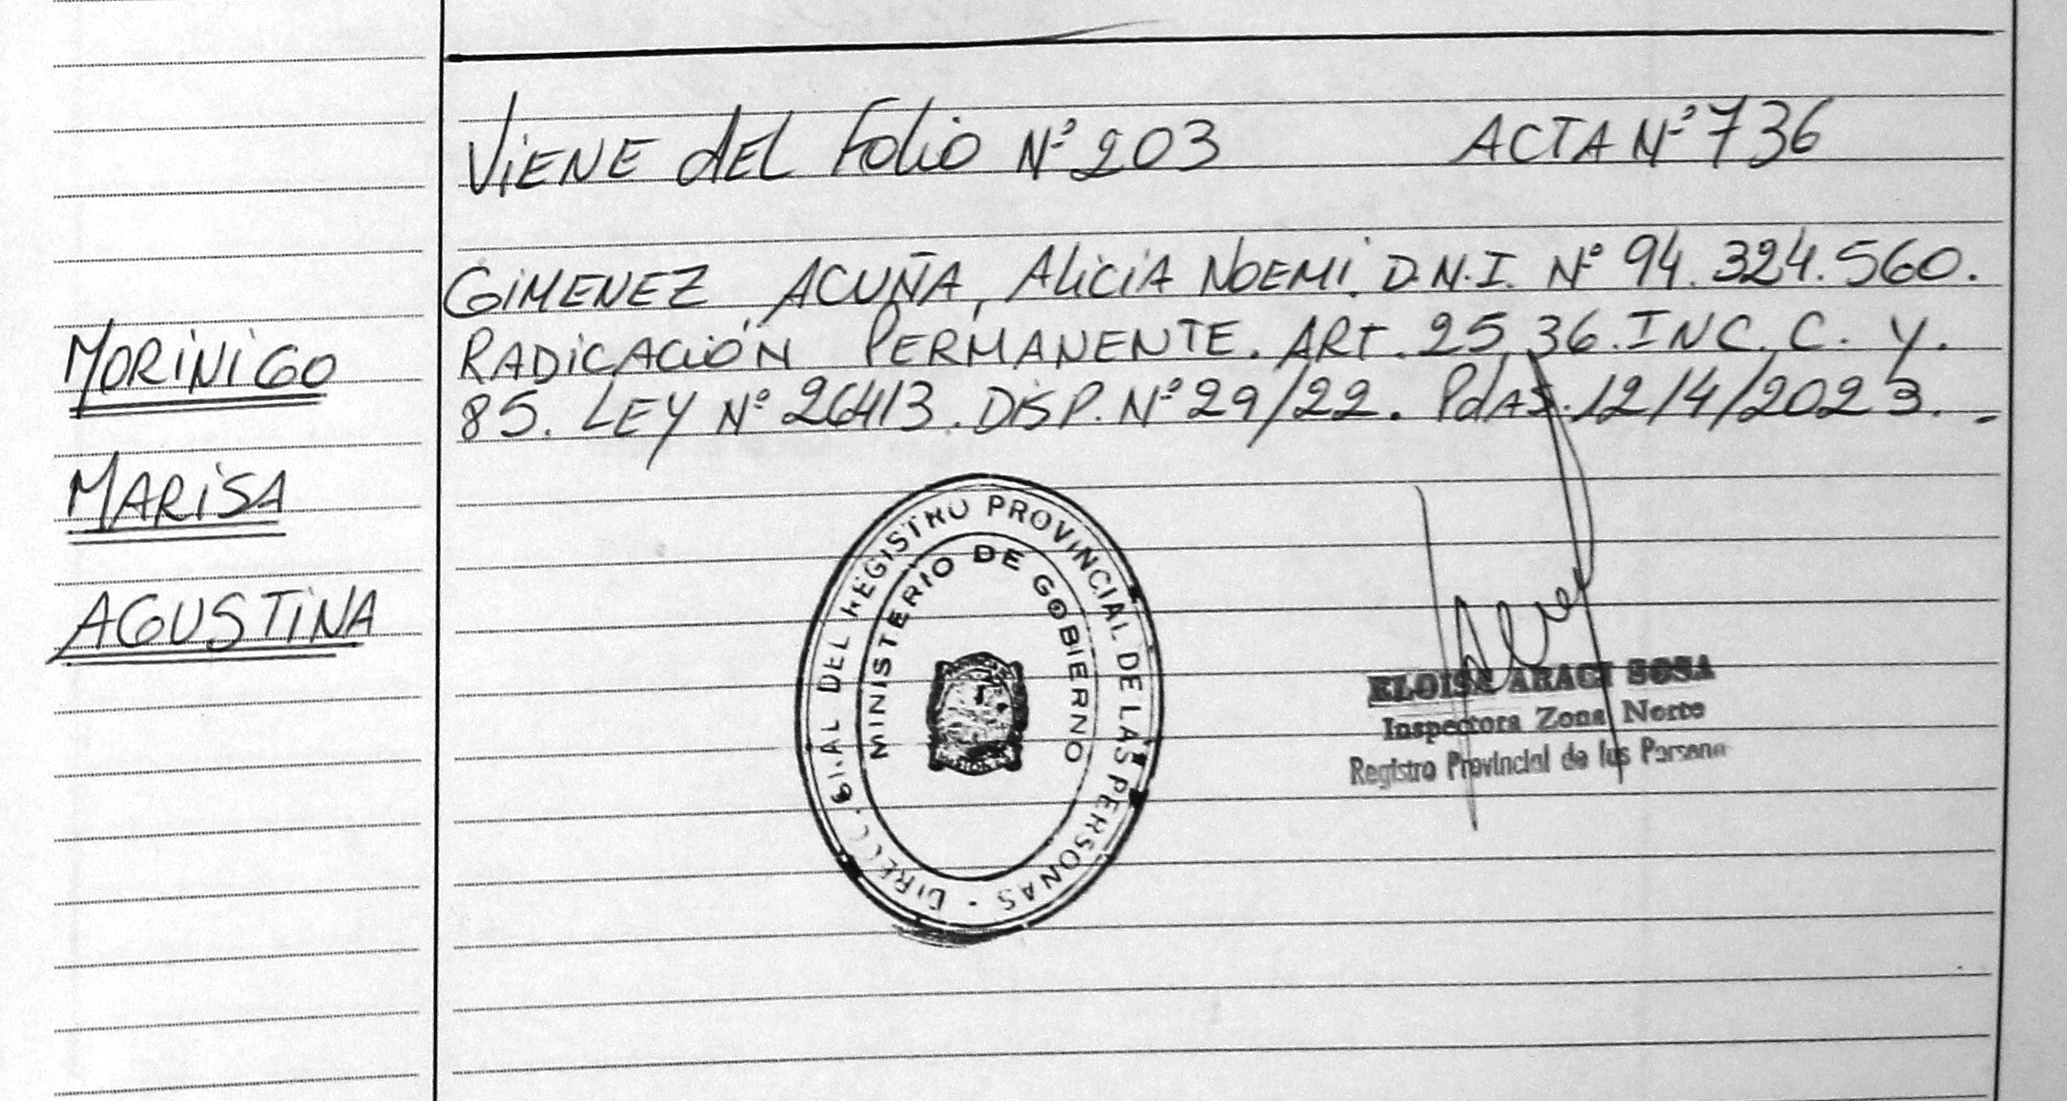 VIENE DEL FOLIO Nº 203 ACTA Nº 736
GIMENEZ ACUÑA, ALICIA NOEMI. D.N.I. Nº 94.324.560.
RADICACIÓN PERMANENTE. ART. 25, 36. INC. C. Y.
85. LEY Nº 26413. DISP. Nº 29/22. PdAS. 12/4/2023.-
MORINIGO
MARISA
AGUSTINA
DEL REGISTRO PROVINCIAL DE LAS PERSONAS -
MINISTERIO DE GOBIERNO
ELOISA ARACI SOSA
Inspectora Zona Norte
Registro Provincial de las